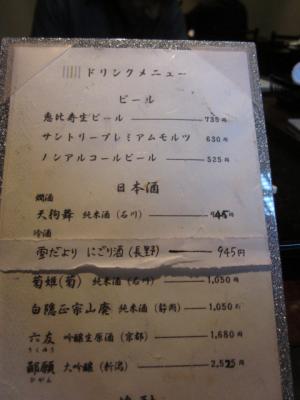 ドリンクメニュー
ビール
恵比寿生ビール 735円
サントリープレミアムモルツ 630円
ノンアルコールビール 525円
日本酒
燗酒
天狗舞 純米酒(石川) 945円
冷酒
雪だより にごり酒(長野) 945円
菊姫(菊) 純米酒(石川) 1,050円
白隠正宗山廃 純米酒(静岡) 1,050円
六友 吟醸生原酒(京都) 1,680円
りくゆう
鄙願 大吟醸(新潟) 2,525円
ひがん